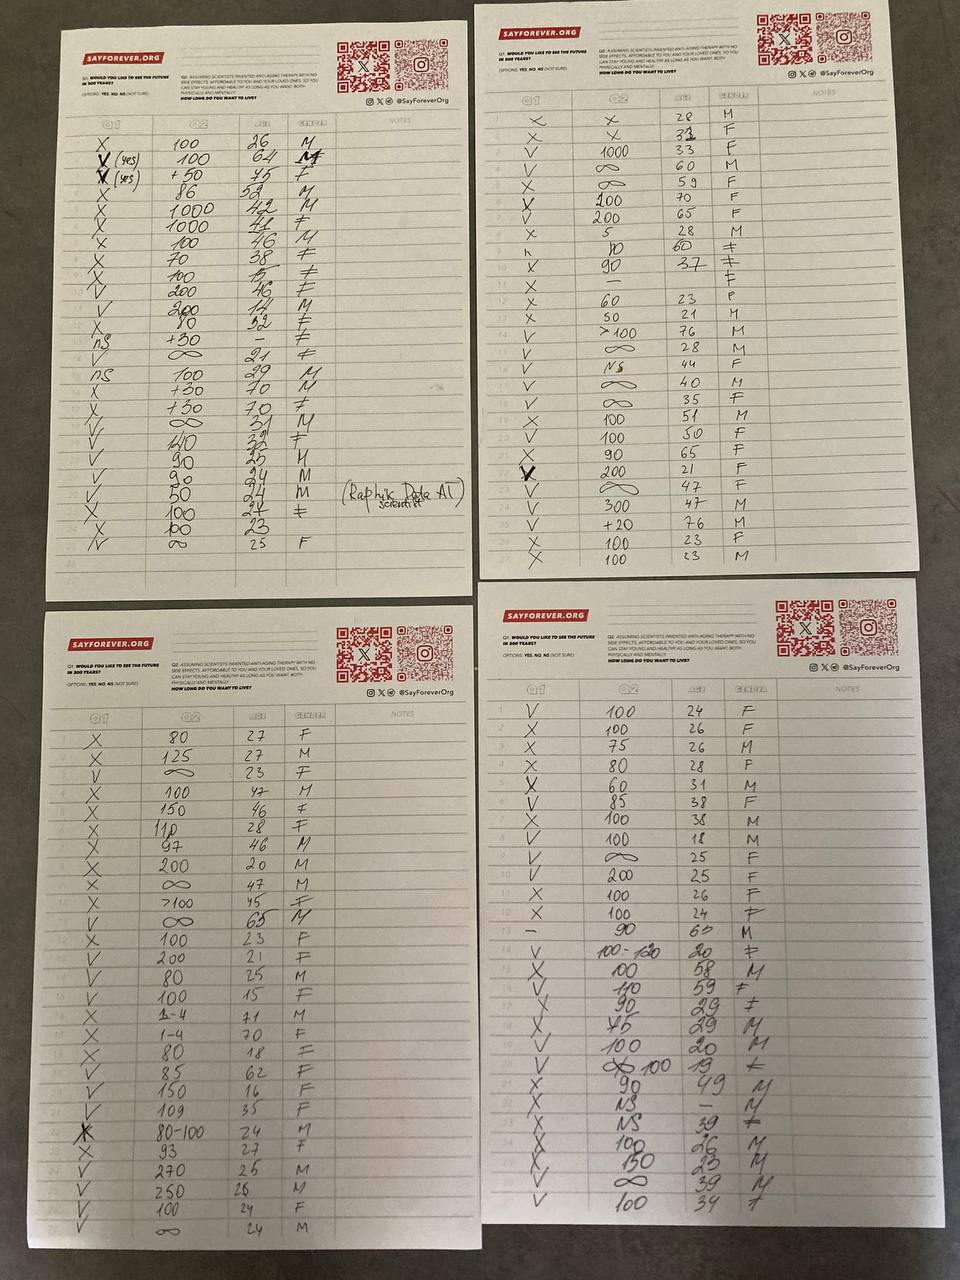 SAYFOREVER.ORG
Q1: WOULD YOU LIKE TO SEE THE FUTURE IN 300 YEARS?
OPTIONS: YES, NO, NS (NOT SURE)
Q2: ASSUMING SCIENTISTS INVENTED ANTI-AGING THERAPY WITH NO SIDE EFFECTS, AFFORDABLE TO YOU AND YOUR LOVED ONES, SO YOU CAN STAY YOUNG AND HEALTHY AS LONG AS YOU WANT, BOTH PHYSICALLY AND MENTALLY.
HOW LONG DO YOU WANT TO LIVE?
@SayForeverOrg
Q1 Q2 AGE GENDER NOTES
X 100 26 M
V (yes) 100 64 M
V (yes) +50 75 F
X 86 52 M
X 1000 42 M
X 1000 41 F
X 100 46 M
X 70 38 F
X 100 15 F
V 200 46 F
V 200 14 M
X 80 52 F
nS +30 – F
V ∞ 21 F
nS 100 29 M
X +30 70 M
X +30 70 F
V ∞ 31 M
V 140 32 F
V 90 25 M
V 90 24 M
V 50 24 M (Raphik Data AI scientist)
X 100 F
X 100 23
V ∞ 25 F
SAYFOREVER.ORG
Q1: WOULD YOU LIKE TO SEE THE FUTURE IN 300 YEARS?
OPTIONS: YES, NO, NS (NOT SURE)
Q2: ASSUMING SCIENTISTS INVENTED ANTI-AGING THERAPY WITH NO SIDE EFFECTS, AFFORDABLE TO YOU AND YOUR LOVED ONES, SO YOU CAN STAY YOUNG AND HEALTHY AS LONG AS YOU WANT, BOTH PHYSICALLY AND MENTALLY.
HOW LONG DO YOU WANT TO LIVE?
@SayForeverOrg
Q1 Q2 AGE GENDER NOTES
X X 28 M
X X F
V 1000 33 F
V ∞ 60 M
X ∞ 59 F
V 200 70 F
V 200 65 F
X 5 28 M
n 60 F
X 90 37 F
X – F
X 60 23 F
X 50 21 M
V >100 76 M
V ∞ 28 M
V NS 44 F
V ∞ 40 M
V ∞ 35 F
X 100 51 M
V 100 50 F
X 90 65 F
V 200 21 F
V ∞ 47 F
V 300 47 M
V +20 76 M
X 100 23 F
X 100 23 M
SAYFOREVER.ORG
Q1: WOULD YOU LIKE TO SEE THE FUTURE IN 300 YEARS?
OPTIONS: YES, NO, NS (NOT SURE)
Q2: ASSUMING SCIENTISTS INVENTED ANTI-AGING THERAPY WITH NO SIDE EFFECTS, AFFORDABLE TO YOU AND YOUR LOVED ONES, SO YOU CAN STAY YOUNG AND HEALTHY AS LONG AS YOU WANT, BOTH PHYSICALLY AND MENTALLY.
HOW LONG DO YOU WANT TO LIVE?
@SayForeverOrg
Q1 Q2 AGE GENDER NOTES
X 80 27 F
X 125 27 M
V ∞ 23 F
X 100 47 M
X 150 46 F
X 110 28 F
X 97 46 M
X 200 20 M
X ∞ 47 M
X >100 45 F
V ∞ 65 M
X 100 23 F
V 200 21 F
V 80 25 M
V 100 15 F
X 1-4 71 M
X 1-4 70 F
X 80 18 F
V 85 62 F
V 150 16 F
V 109 35 F
X 80-100 24 M
X 93 27 F
V 270 25 M
V 250 26 M
V 100 24 F
V ∞ 24 M
SAYFOREVER.ORG
Q1: WOULD YOU LIKE TO SEE THE FUTURE IN 300 YEARS?
OPTIONS: YES, NO, NS (NOT SURE)
Q2: ASSUMING SCIENTISTS INVENTED ANTI-AGING THERAPY WITH NO SIDE EFFECTS, AFFORDABLE TO YOU AND YOUR LOVED ONES, SO YOU CAN STAY YOUNG AND HEALTHY AS LONG AS YOU WANT, BOTH PHYSICALLY AND MENTALLY.
HOW LONG DO YOU WANT TO LIVE?
@SayForeverOrg
Q1 Q2 AGE GENDER NOTES
V 100 24 F
X 100 26 F
X 75 26 M
X 80 28 F
X 60 31 M
V 85 38 F
X 100 38 M
V 100 18 M
V ∞ 25 F
V 200 25 F
X 100 26 F
X 100 24 F
– 90 M
V 100-120 20 F
X 100 58 M
V 110 59 F
X 90 29 F
X 75 29 M
V 100 20 M
V 100 19 F
X 90 49 M
X NS – M
X NS 39 F
X 100 26 M
X 150 23 M
V ∞ 39 M
V 100 34 F